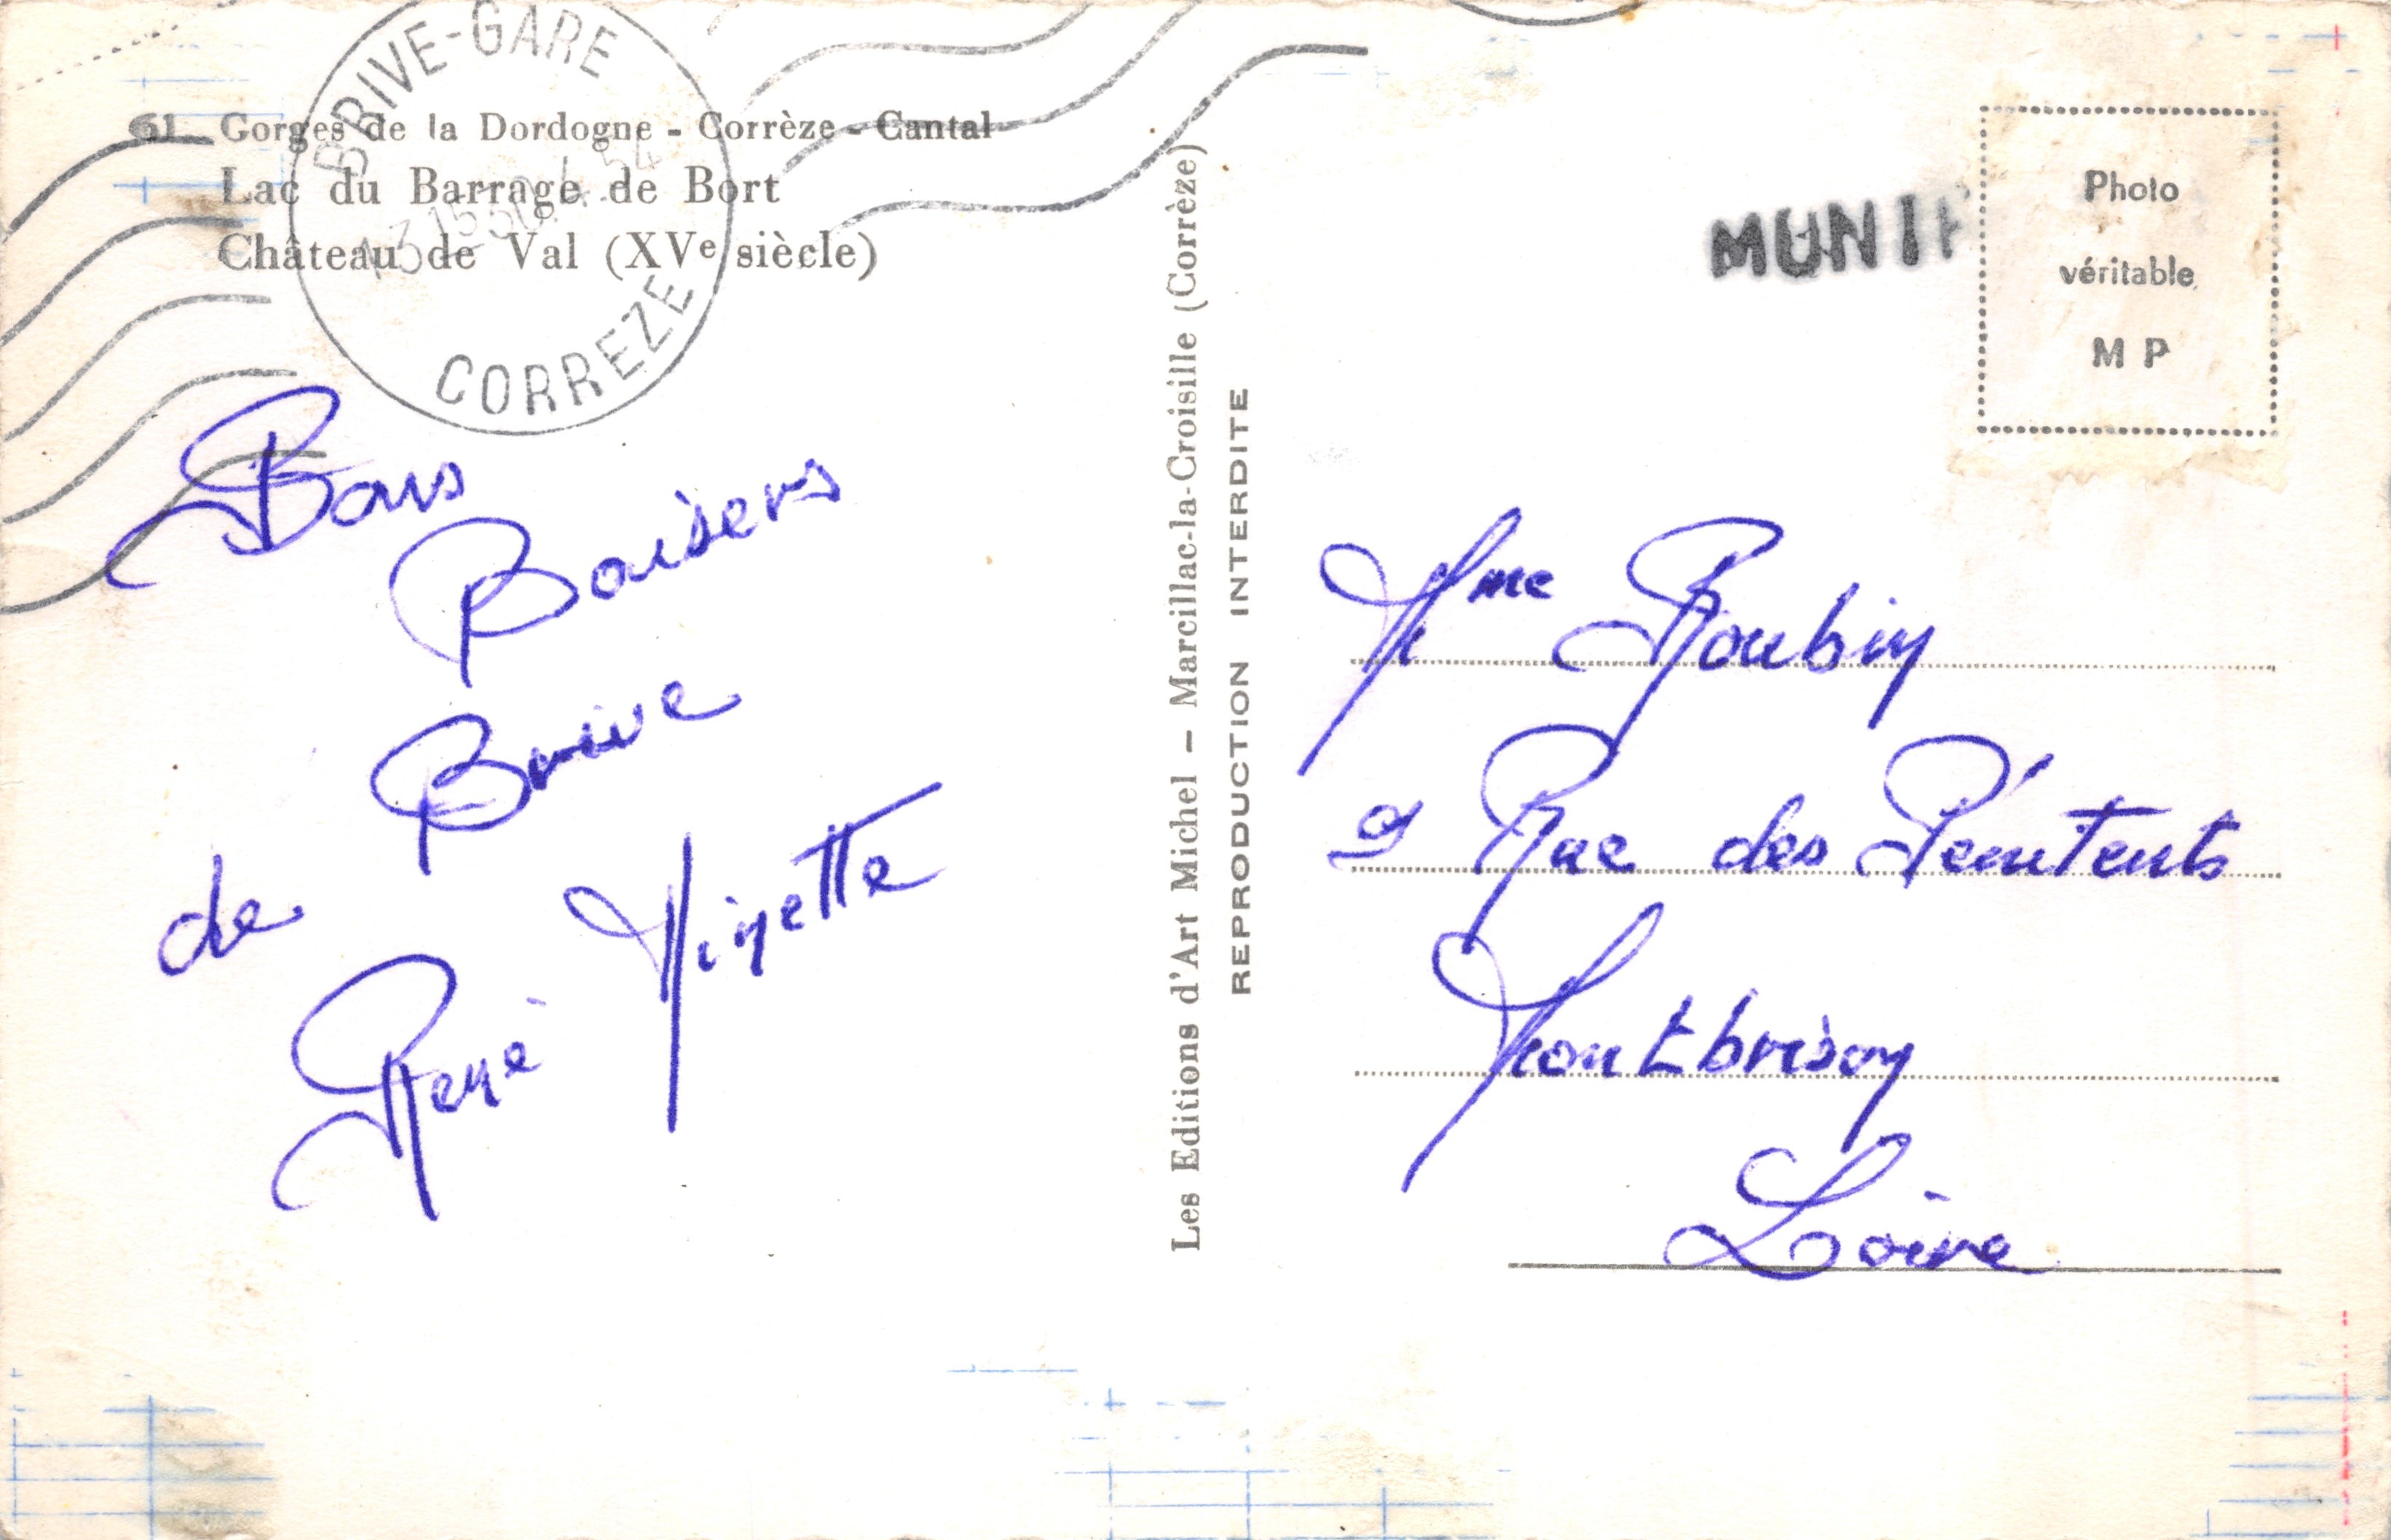 BRIVE-GARE
CORREZE
61 Gorges de la Dordogne - Corrèze - Cantal
Lac du Barrage de Bort
Château de Val (XVe siècle)
Bons
Baisers
Brive
de Minette
René
Les Editions d'Art Michel – Marcillac-la-Croisille (Corrèze)
REPRODUCTION INTERDITE
MUNI
Photo
véritable
M P
Mme Roubin
9 Rue des Pénitents
Montbrison
Loire